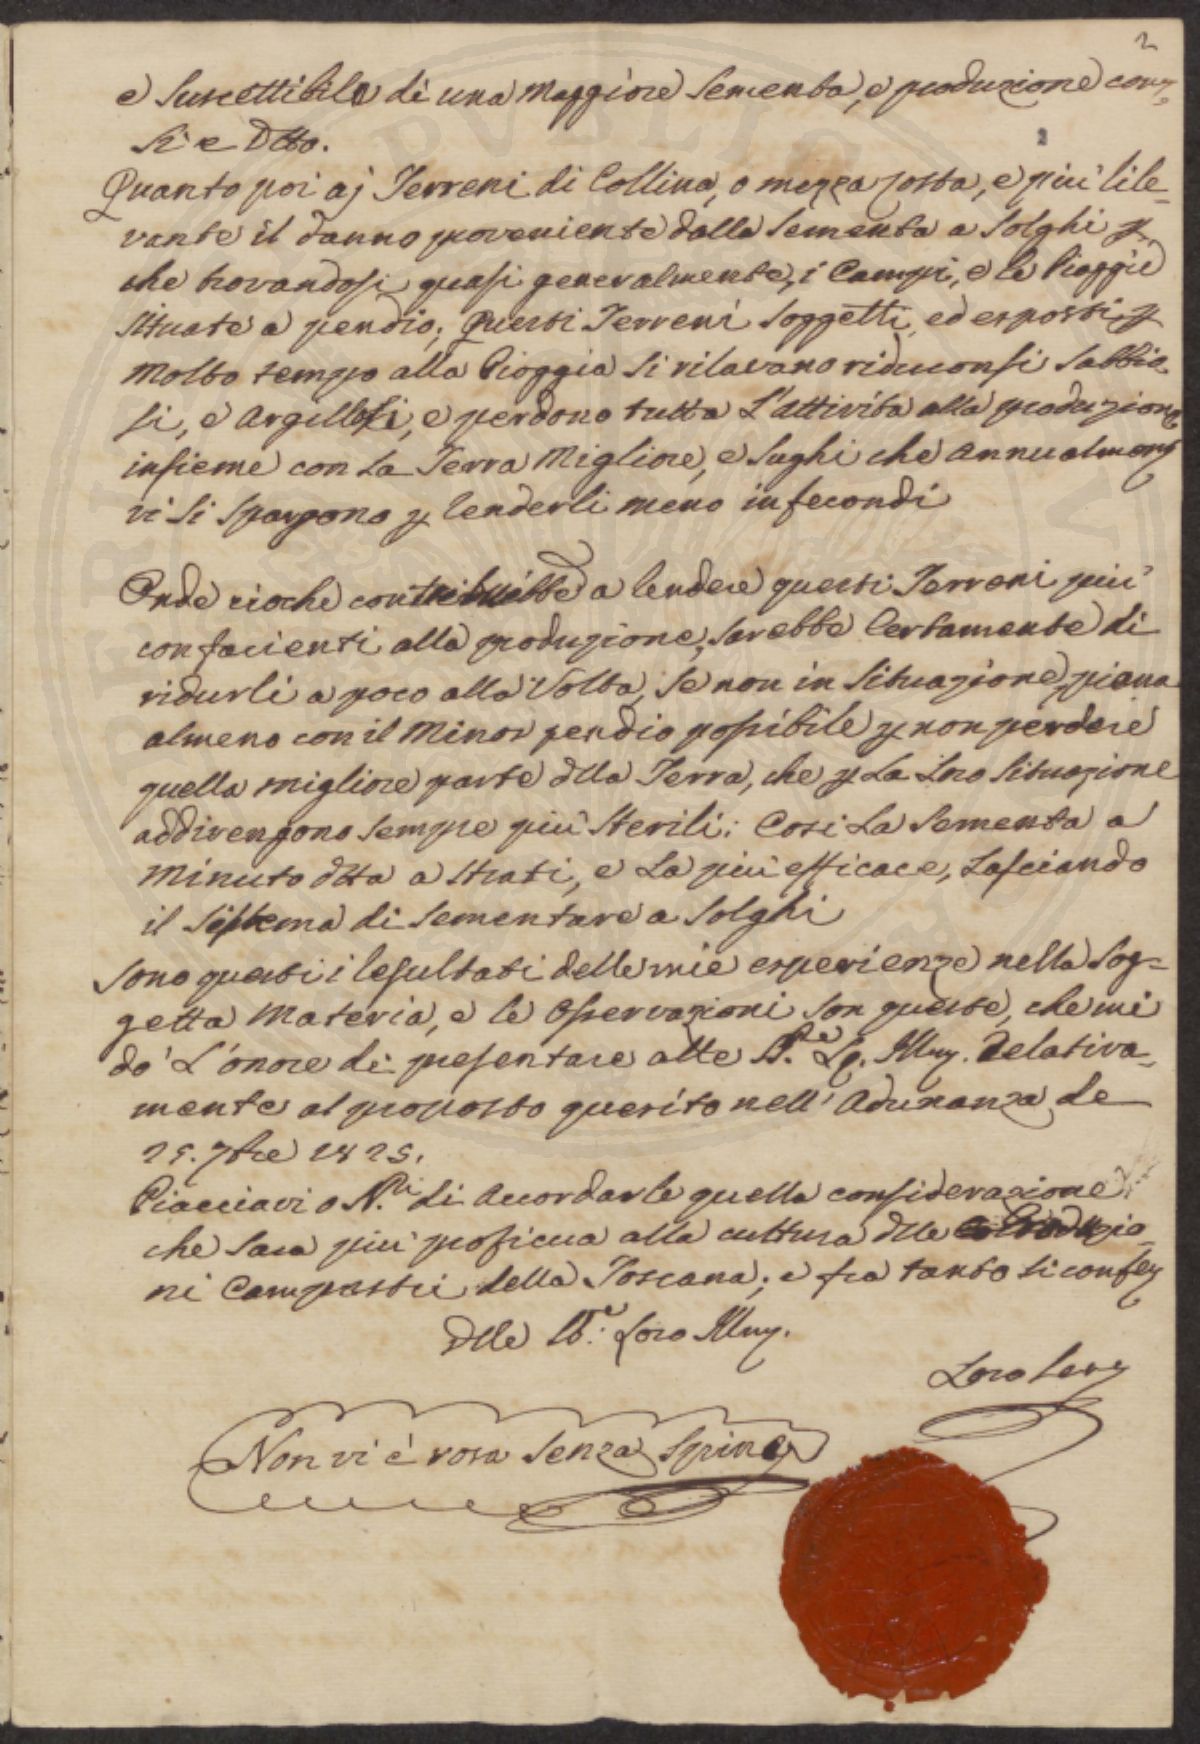 2
e Suscettibile di una Maggiore Sementa, e produzione come
si è Dtto.
2
Quanto poi aj Terreni di Collina, o mezza Costa, e più rile=
vante il danno proveniente dalla Sementa a Solghi p
che trovandosi quasi generalmente, i Campi, e le Piaggie
situate a pendio; Questi Terreni soggetti, ed esposti p
Molto tempo alla Pioggia si rilavano riduconsi Sabbio
si, e Argillosi, e perdono tutta L'attività alla produzione
insieme con La Terra Migliore, e Sughi che Annualmente
vi si spargono p renderli meno infecondi
Onde cioche contribuirebbe a rendere questi Terreni più
confacienti alla produzione, sarebbe Certamente di
ridurli a poco alla Volta, se non in Situazione piana
almeno con il Minor pendio possibile p non perdere
quella migliore parte dlla Terra, che p La Loro Situazione
addivengono sempre più Sterili: Cosi La Sementa a
Minuto dtta a Strati, e La più efficace, Lasciando
il Sistema di Sementare a Solghi
Sono questi i resultati delle mie esperienze nella Sog=
getta Materia, e le Osservazioni son queste, che mi
do' L'onore di presentare alle Illme. Relativa=
mente al proposto quesito nell' Adunanza de
25. 7bre 1825.
Piacciavi o N.li di Accordarle quella considerazione
che sara più proficua alla cultura dlle Produzio=
ni Campestri della Toscana; e fra tanto si confessa
Dlle Loro Illme.
Loro Serv
Non vi è rosa senza Spine